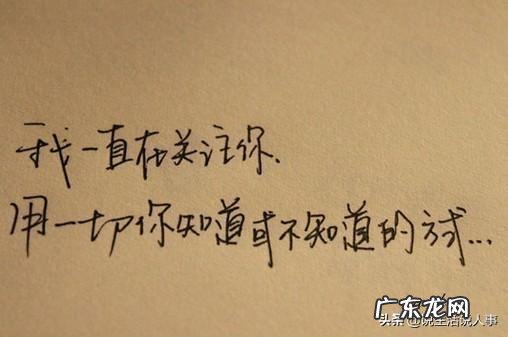 我一直在关注你.
用一切你知道或不知道的方式...
广东龙网
头条@说生活说人事